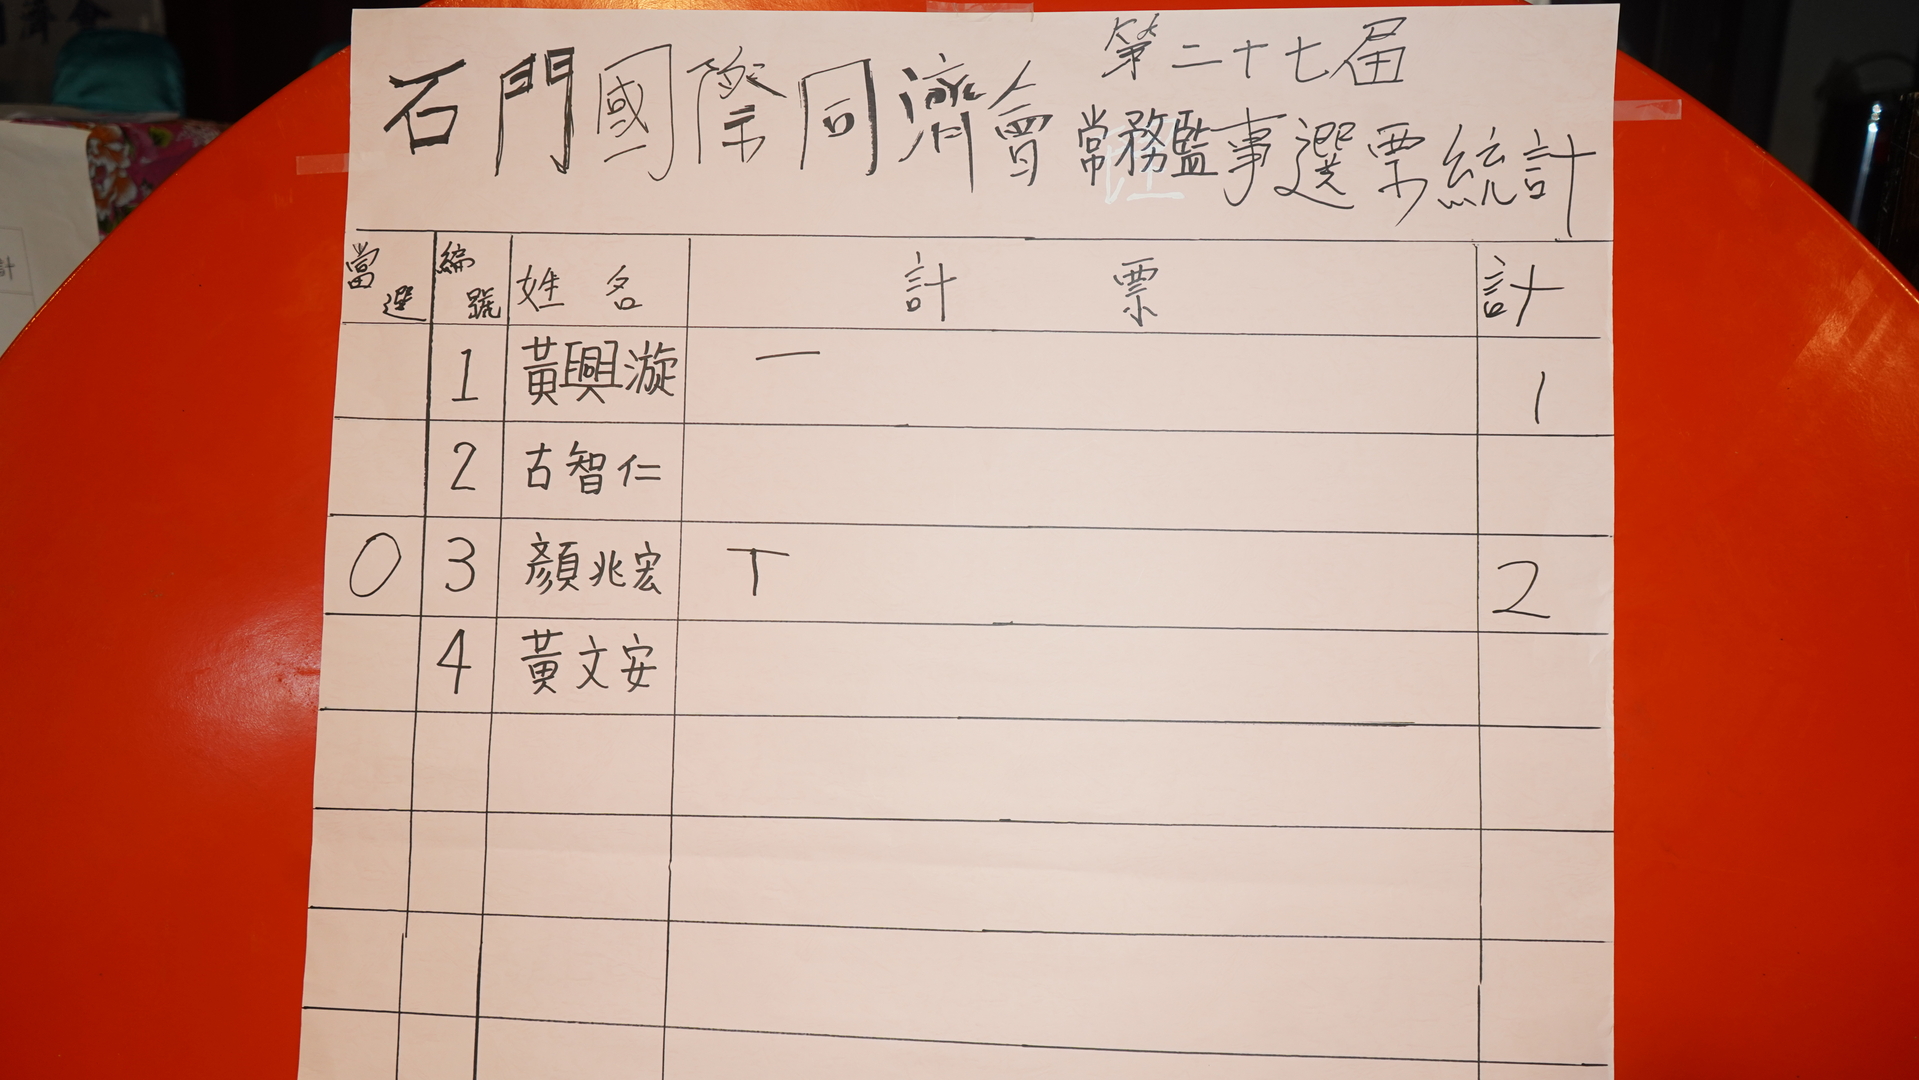 石門國際同濟會 第二十七屆
常務監事選票統計
當選 編號 姓名 計票 計
1 黃興漩 一 1
2 古智仁
O 3 顏兆宏 丅 2
4 黃文安